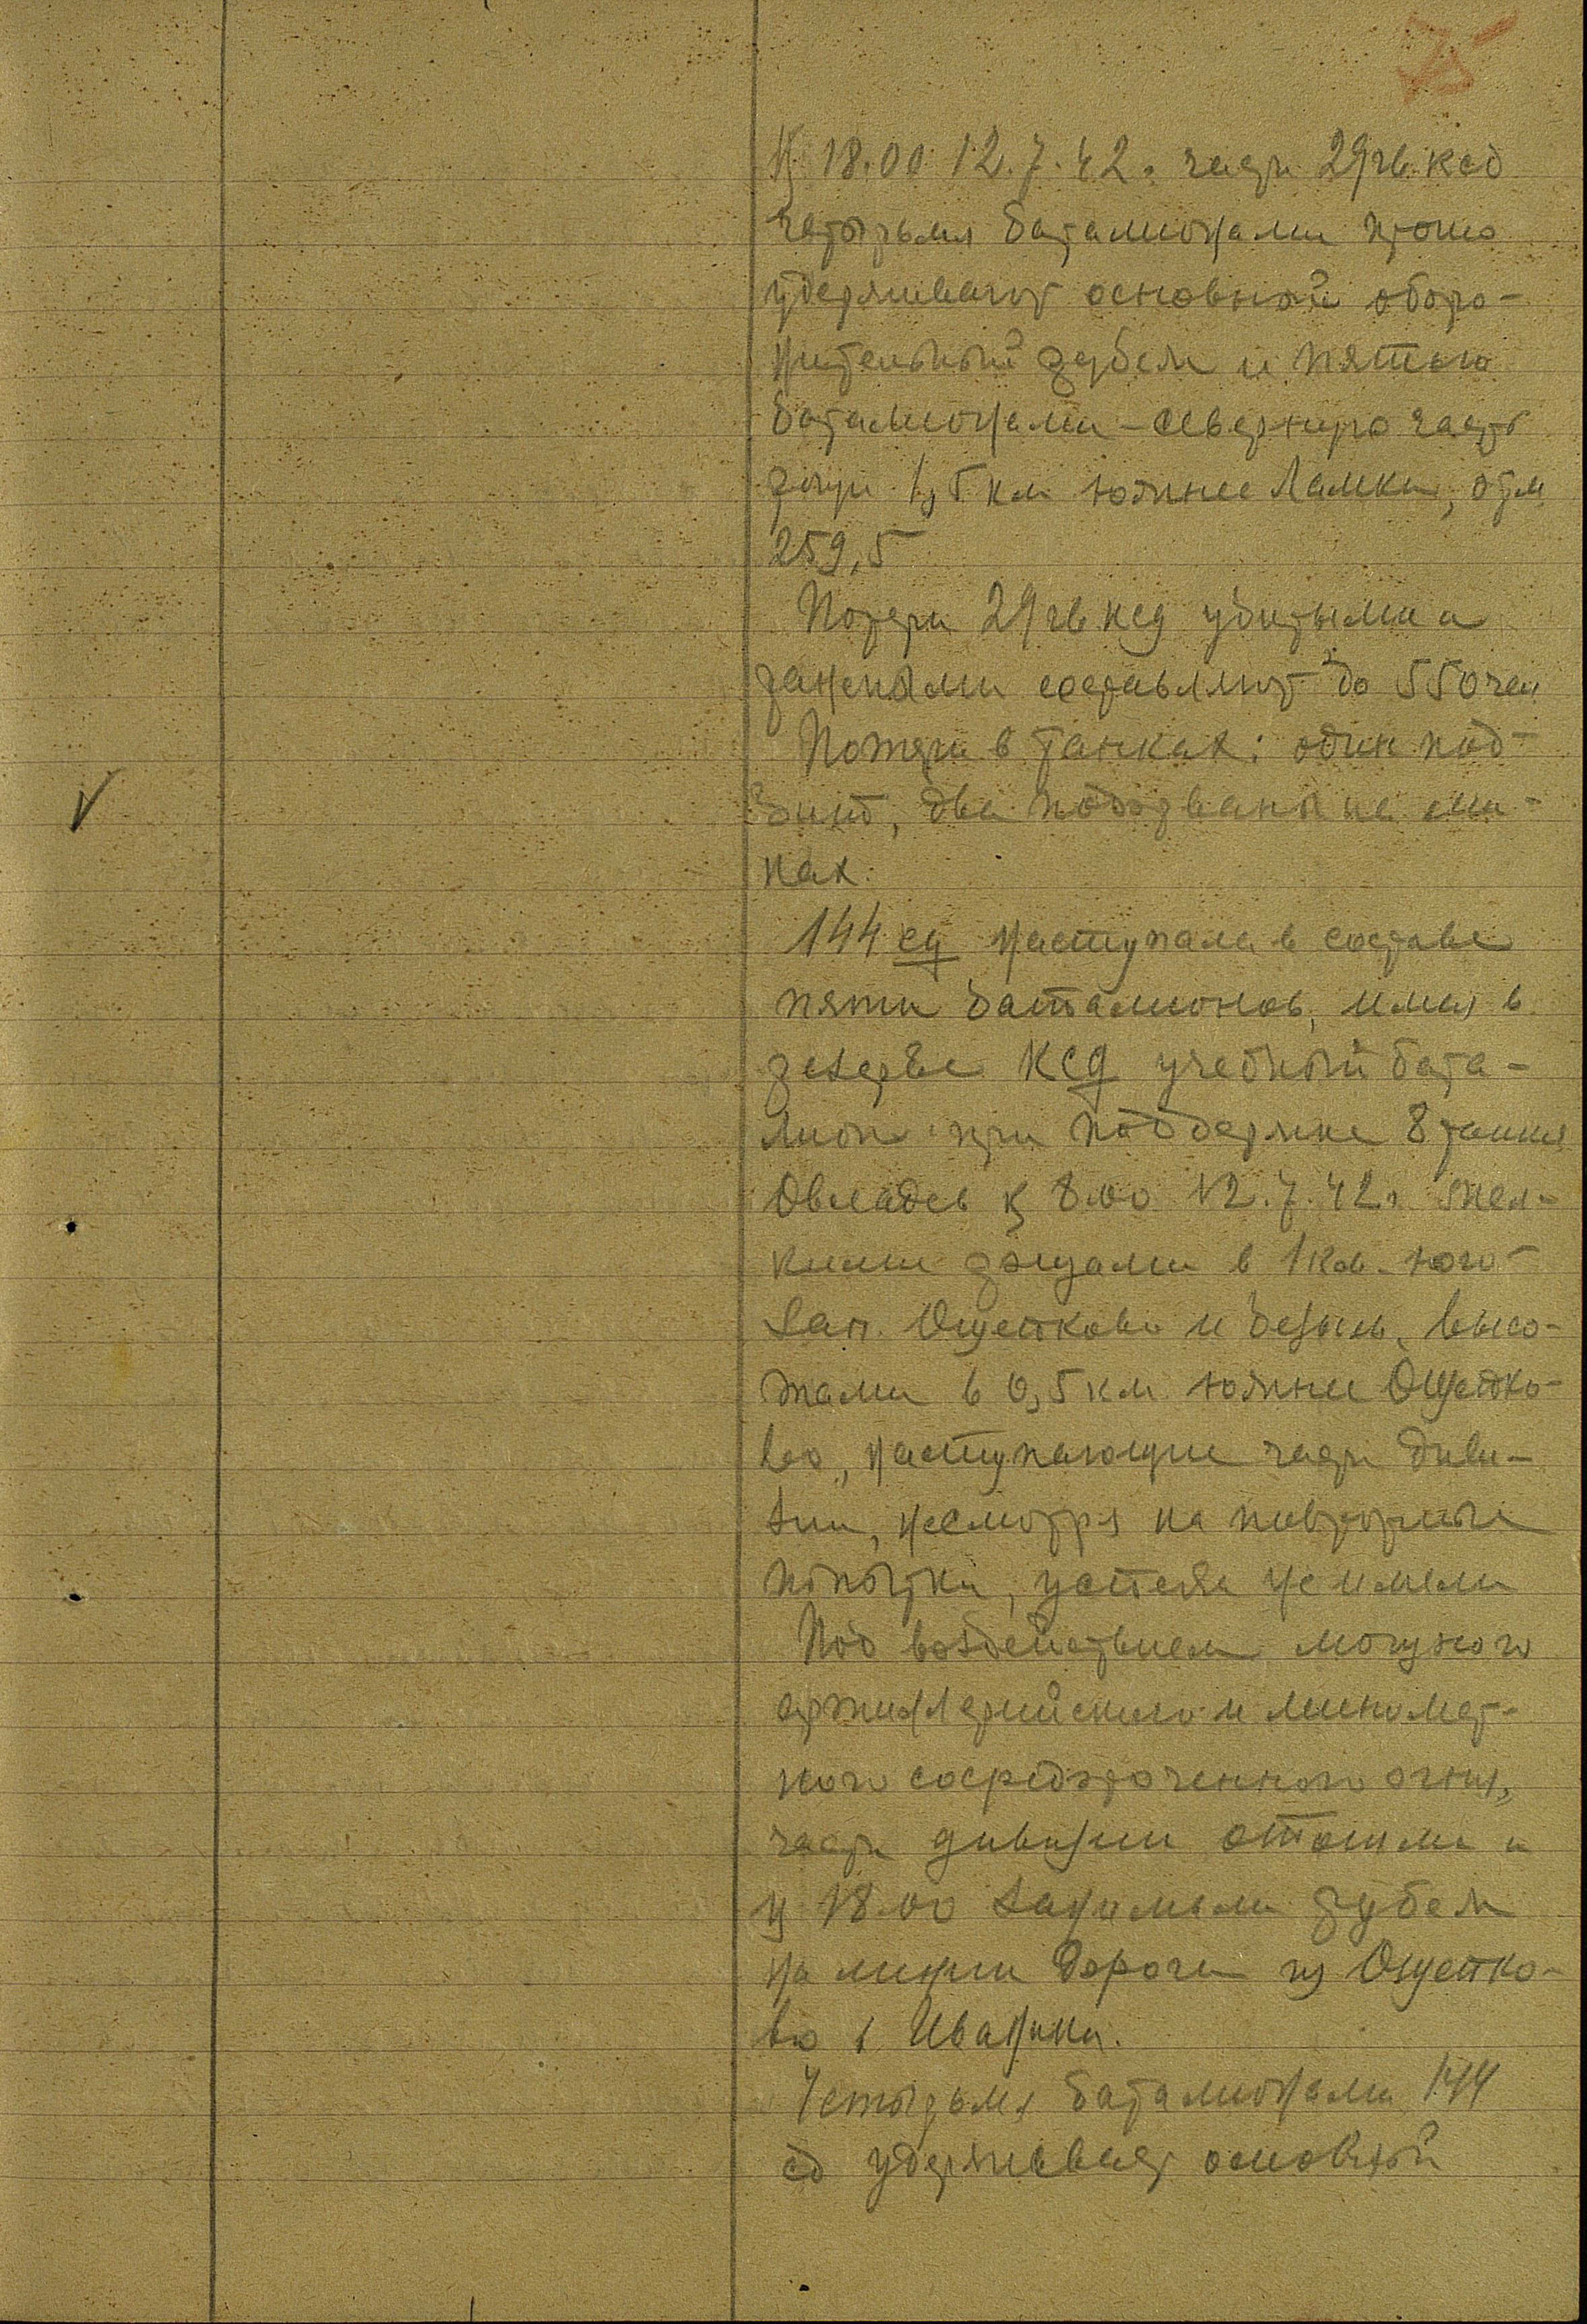 75
К 18.00 12.7.42г. части 29 гв. ксд
четырьмя баталионами прочно
удерживают основной оборо-
нительный рубеж и пятью
баталионами - северную часть
рощи 1,5 км южнее Ламки, отм
259,5
Потери 29 гв ксд убитыми и
ранеными составляют до 550 чел
Потери в танках: один под-
бит, два подорваны на ми-
нах.
144 сд наступала в составе
пяти баталионов, имея в
резерве КСД учебный бата-
лион при поддержке 8 танков
Овладев к 8.00 12.7.42г мел-
кими рощами в 1 км. юго-
зап. Ощепково и безым. высо-
тами в 0,5 км южнее Ощепко-
во, наступающие части диви-
зии, несмотря на повторные
попытки, успеха не имели
Под воздействием мощного
артиллерийского и миномет-
ного сосредоточенного огня,
части дивизии отошли и
к 18.00 занимали рубеж
на линии дороги из Ощепко-
во в Иваники.
Четырьмя баталионами 144
сд удерживает основной